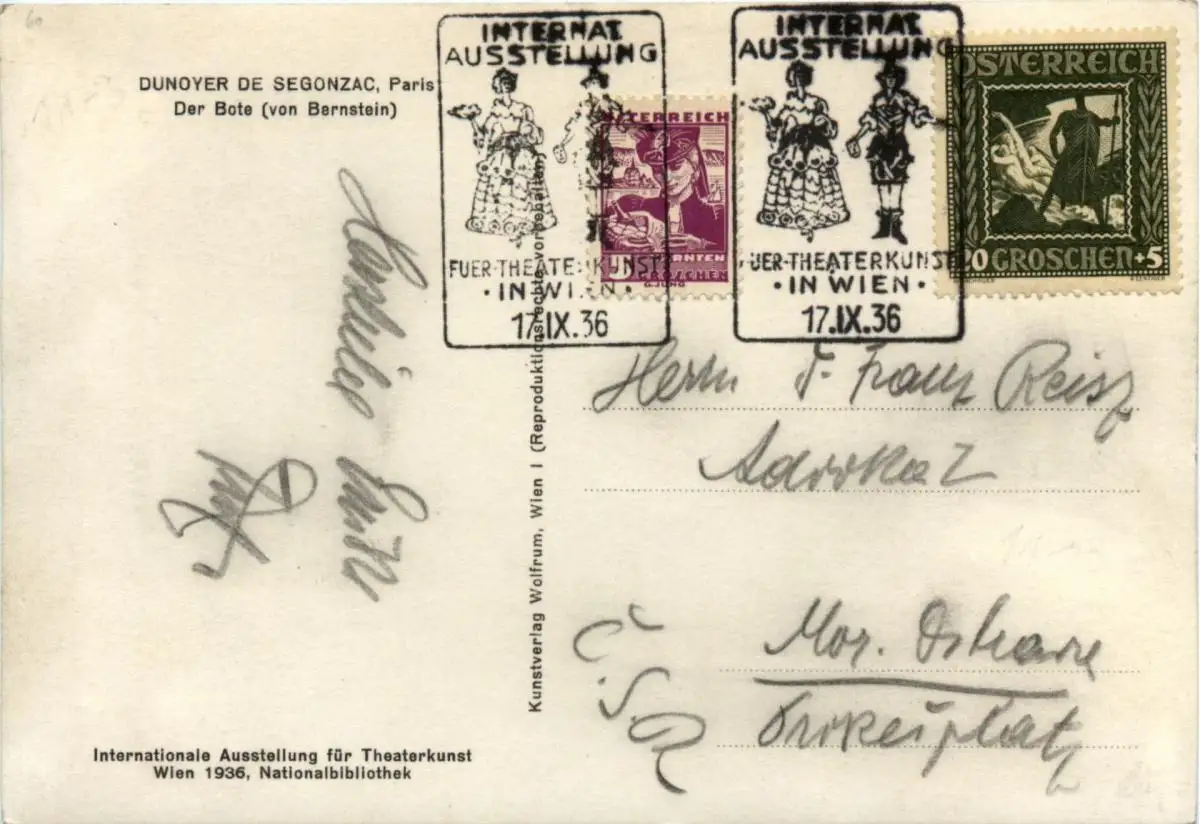 DUNOYER DE SEGONZAC, Paris
Der Bote (von Bernstein)
INTERNAT
AUSSTELLUNG
FUER-THEATERKUNST
· IN WIEN ·
17.IX.36
INTERNAT
AUSSTELLUNG
FUER-THEATERKUNST
· IN WIEN ·
17.IX.36
ÖSTERREICH
KÄRNTEN
GROSCHEN
G.JUNG
ÖSTERREICH
20 GROSCHEN +5
Kunstverlag Wolfrum, Wien I (Reproduktionsrechte vorbehalten)
Herrn Dr. Franz Reisz
Advokat
Mor. Ostrau
Č.S.R.
Internationale Ausstellung für Theaterkunst
Wien 1936, Nationalbibliothek